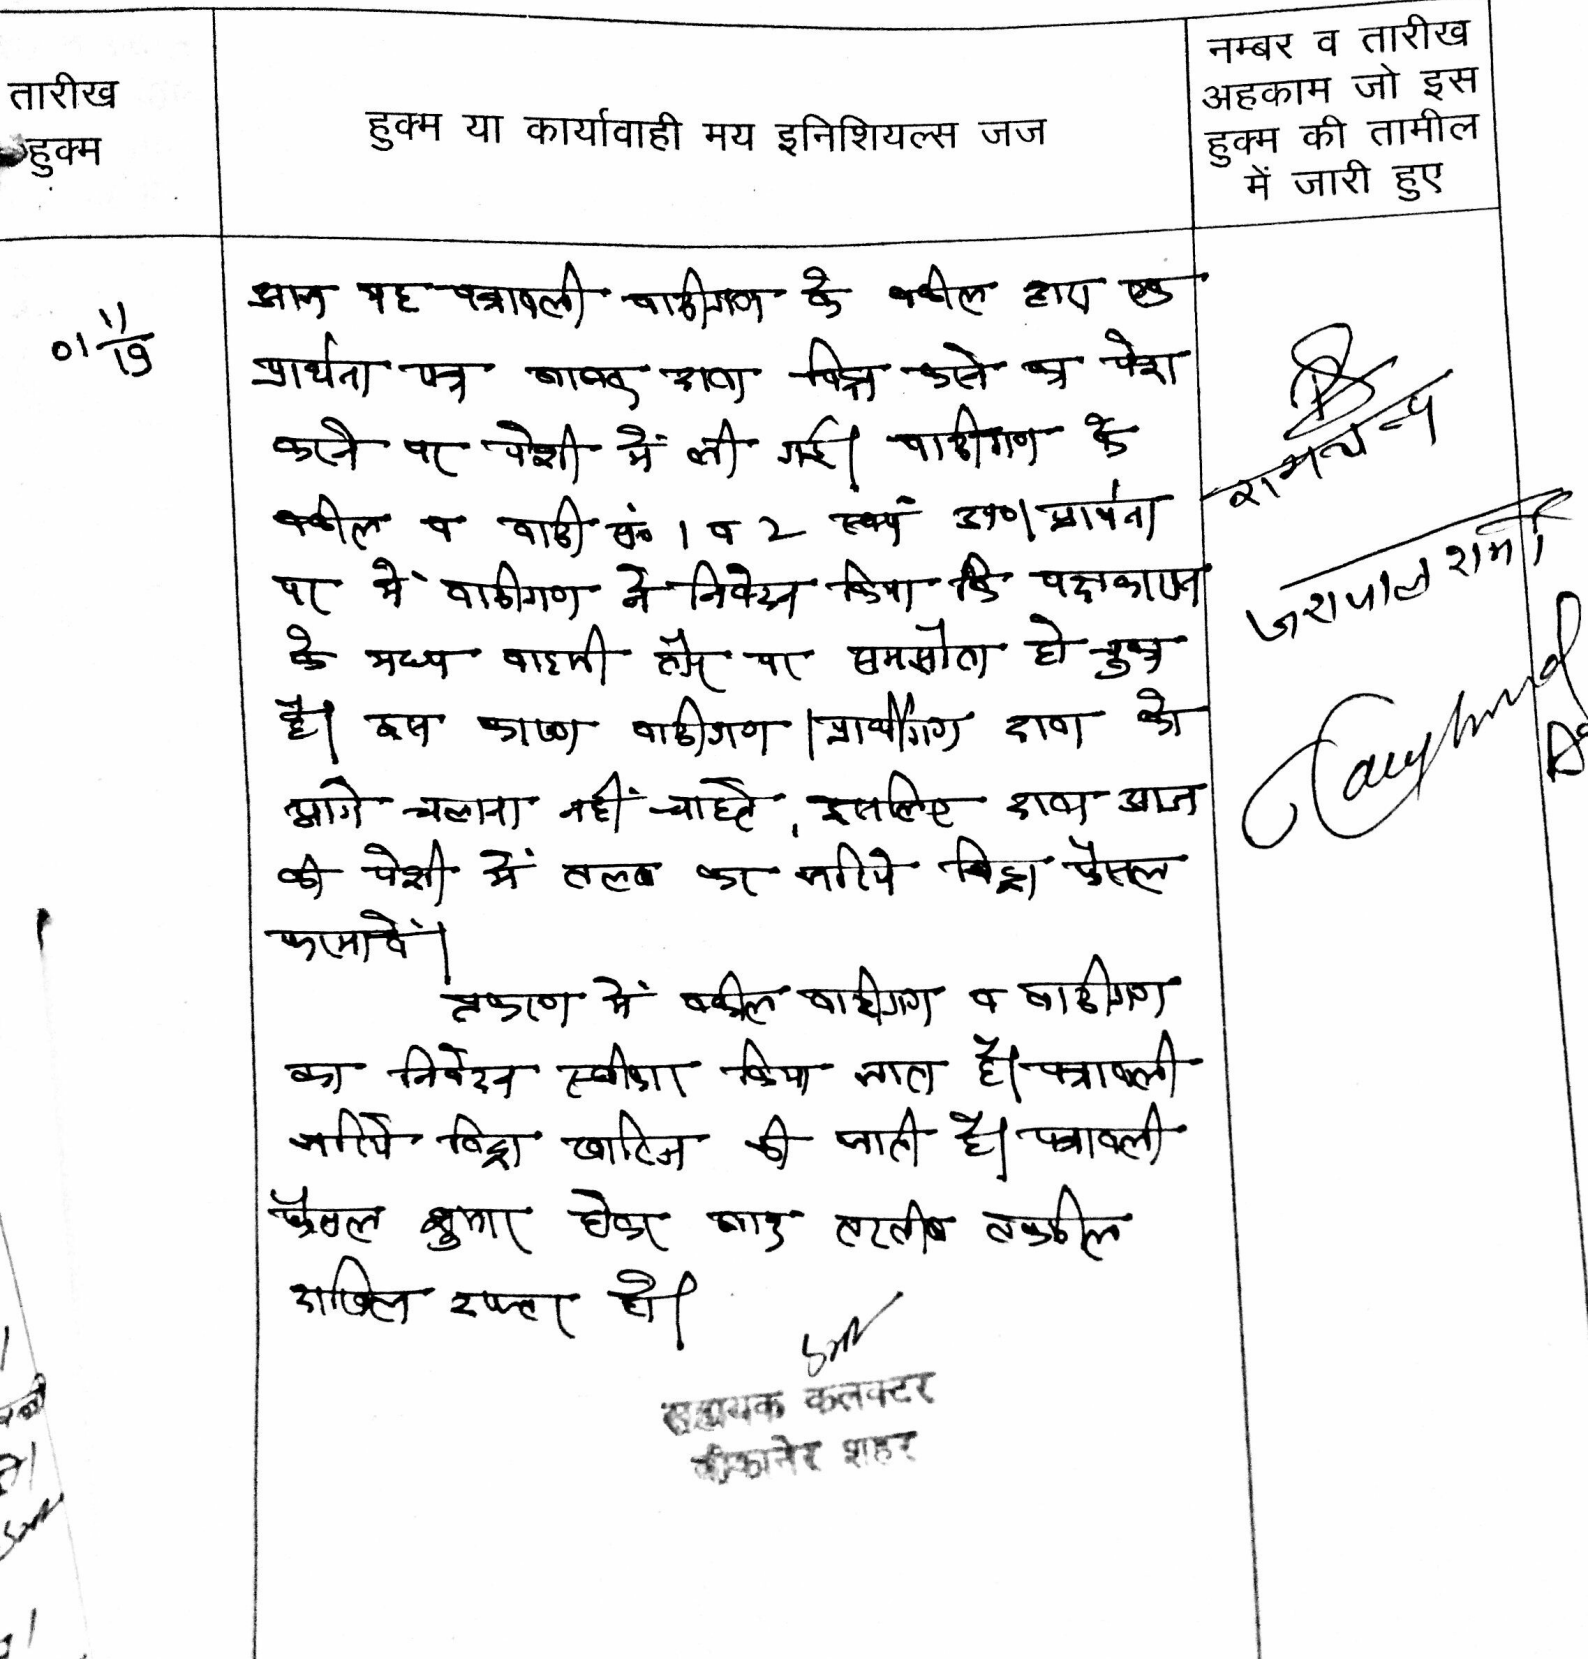 तारीख
हुक्म
हुक्म या कार्यावाही मय इनिशियल्स जज
नम्बर व तारीख
अहकाम जो इस
हुक्म की तामील
में जारी हुए
01/11/19
आज यह पत्रावली वादीगण के वकील द्वारा एक
प्रार्थना पत्र बाबत दावा विड्रा करने का पेश
करने पर पेशी में ली गई। वादीगण के
वकील व वादी सं० 1 व 2 स्वयं उप०। प्रार्थना
पत्र में वादीगण ने निवेदन किया कि पक्षकारान
के मध्य बाहमी तौर पर समझौता हो चुका
है। इस कारण वादीगण / प्रार्थीगण दावा को
आगे चलाना नहीं चाहते, इसलिए दावा आज
की पेशी में तलब कर जरिये विड्रा फैसल
फरमावें।
प्रकरण में वकील वादीगण व वादीगण
का निवेदन स्वीकार किया जाता है। पत्रावली
जरिये विड्रा खारिज की जाती है। पत्रावली
फैसल शुमार होकर बाद तरतीब तकमील
दाखिल दफ्तर हो।
सहायक कलक्टर
बीकानेर शहर
रामचन्द्र
जशपाल शर्मा